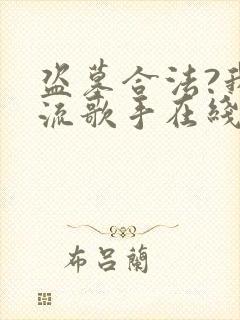 盗墓合法?我
流歌手在綫
布吕蘭